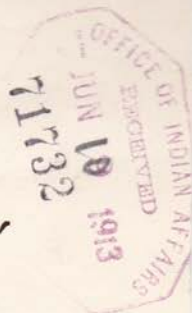 OFFICE OF INDIAN AFFAIRS
RECEIVED
JUN 10 1913
71732